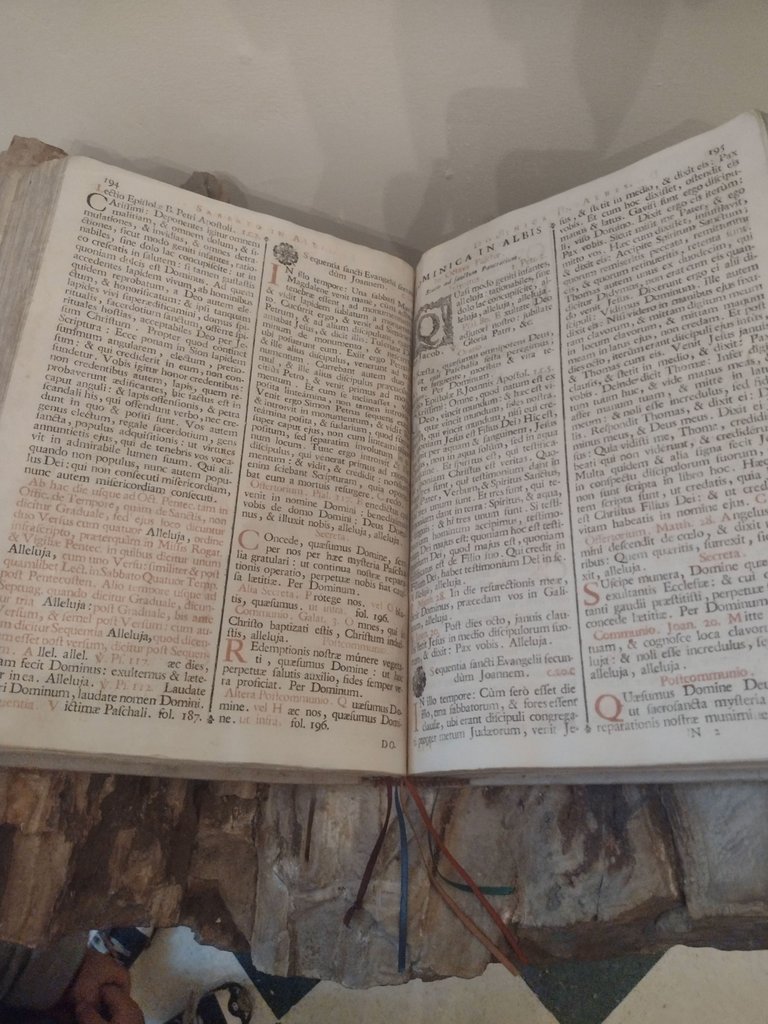 194
SABBATO IN ALBIS.
Lectio Epiſtolæ B. Petri Apoſtoli.
CAriſſimi: Deponentes igitur omnem
malitiam, & omnem dolum, &
mulationes, & invidias, & omnes detra-
ſicut modo geniti infantes, ratio-
nabiles, ſine dolo lac concupiſcite: ut in
eo creſcatis in ſalutem: ſi tamen guſtaſtis
quoniam dulcis eſt Dominus. Ad quem
accedentes lapidem vivum, ab hominibus
quidem reprobatum, a Deo autem ele-
& honorificatum: & ipſi tanquam
lapides vivi ſuperædificamini, domus ſpi-
ritualis, ſacerdotium ſanctum, offerre ſpi-
rituales hoſtias, acceptabiles Deo per Je-
Chriſtum. Propter quod continet
Scriptura: Ecce ponam in Sion lapidem
ſummum angularem, electum, pretio-
ſum: & qui crediderit in eum, non con-
fundetur. Vobis igitur honor credentibus:
non credentibus autem, lapis, quem re-
probaverunt ædificantes, hic factus eſt in
caput anguli: & lapis offenſionis, & petra
ſcandali his, qui offendunt verbo, nec cre-
dunt in quo & poſiti ſunt. Vos autem
genus electum, regale ſacerdotium, gens
ſancta, populus acquiſitionis: ut virtutes
annuntietis ejus, qui de tenebris vos voca-
vit in admirabile lumen ſuum. Qui ali-
quando non populus, nunc autem popu-
lus Dei: qui non conſecuti miſericordiam,
nunc autem miſericordiam conſecuti.
Ab hac die uſque ad Oct. Pentec. tam in
Offic. de Tempore, quam de Sanctis, non
dicitur Graduale, ſed ejus loco dicuntur
duo Verſus cum quatuor Alleluja, ordine
infraſcripto, præterquam in Miſſis Rogat.
& Vigiliæ Pentec. in quibus dicitur unum
Alleluja, cum uno Verſu: ſimiliter & poſt
quamlibet Lect. in Sabbato Quatuor Temp.
poſt Pentecoſten. A Trinit. ac
Septuag. quando dicitur Graduale, dicun-
tur tria Alleluja: poſt Graduale, bis ante
Verſum, & ſemel poſt Verſum: cum au-
tem dicitur Sequentia Alleluja, quod dicen-
dum eſſet poſt verſum, dicitur poſt Sequen-
Allel. allel. ℣. Pſ. 117. æc dies,
quam fecit Dominus: exultemus & læte-
mur in ea. Alleluja. ℣. Pſ. 112. Laudate
pueri Dominum, laudate nomen Domini.
Sequentia. Victimæ Paſchali. fol. 187.
Sequentia ſancti Evangelii ſecun-
dùm Joannem.
IN illo tempore: Una ſabbati, Maria
Magdalene venit mane, cum adhuc
vidit lapidem ſublatum a monumento.
Cucurrit ergo, & venit ad Simonem
Petrum, & ad alium diſcipulum, quem
amabat Jeſus, & dicit illis:
poſuerunt eum. Exiit ergo
Petrus, & ille alius diſcipulus, & venerunt
mul, & ille alius diſcipulus præcucurrit
citiùs Petro, & venit
mentum. Et cum ſe inclinaſſet, vidit
poſita linteamina, non tamen introivit.
Venit ergo Simon Petrus ſequens
introivit in monumentum, & vidit lin-
teamina poſita, & ſudarium, quod fuerat
ſuper caput ejus, non cum linteaminibus
poſitum, ſed ſeparatim involutum in
unum locum. Tunc ergo introivit & ille
diſcipulus, qui venerat primus ad
mentum: & vidit, & credidit: nondum
enim ſciebant Scripturam, quia oporte-
bat eum a mortuis reſurgere. Credo.
Offertorium. Pſal. 117. Benedictus, qui
venit in nomine Domini: benedi-
vobis de domo Domini: Deus Domi-
nus, & illuxit nobis, alleluja, alleluja.
Secreta.
COncede, quæſumus Domine, ſem-
per nos per hæc myſteria Paſcha-
lia gratulari: ut continua noſtræ repara-
tionis operatio, perpetuæ nobis fiat cau-
ſa lætitiæ. Per Dominum.
Alia Secreta. Protege nos, vel O
tis, quæſumus. ut infra. fol. 196.
Communio. Galat. 3. Omnes, qui in
Chriſto baptizati eſtis, Chriſtum indui-
ſtis, alleluja.
REdemptionis noſtræ múnere vegeta-
ti, quæſumus Domine: ut hoc
perpetuæ ſalutis auxilio, fides ſemper ve-
ra proficiat. Per Dominum.
Altera Poſtcommunio. Quæſumus Do-
mine. vel Hæc nos, quæſumus Domi-
ne. ut infra. fol. 196.
DO-
195
DOMINICA IN ALBIS
QUaſi modo geniti infantes,
alleluja: rationabiles, ſine
dolo lac concupiſcite, al-
leluja, alleluja, alleluja.
Exultate Deo
adjutori noſtro: jubilate
Deo Jacob. Gloria Patri, &c.
quæſumus omnipotens Deus,
ut qui Paſchalia feſta peregi-
te te-
Per Dominum.
Lectio Epiſtolæ B. Joannis Apoſtoli.
CAriſſimi: Omne, quod natum eſt ex
Deo, vincit mundum: & hæc eſt
victoria, quæ vincit mundum, fides noſtra.
Quis eſt, qui vincit mundum, niſi qui cre-
dit quoniam Jeſus eſt Filius Dei? Hic eſt,
qui venit per aquam & ſanguinem, Jeſus
Chriſtus: non in aqua ſolùm, ſed in aqua
& ſanguine. Et ſpiritus eſt, qui teſtifica-
tur, quoniam Chriſtus eſt veritas. Quo-
niam tres ſunt, qui teſtimonium dant in
cælo: Pater, Verbum, & Spiritus Sanctus,
& hi tres unum ſunt. Et tres ſunt, qui te-
ſtimonium dant in terra: Spiritus, & aqua,
& ſanguis: & hi tres unum ſunt. Si teſtimo-
nium hominum accipimus, teſtimo-
nium Dei majus eſt: quoniam hoc eſt teſti-
monium Dei, quod majus eſt, quoniam
teſtificatus eſt de Filio ſuo. Qui credit in
Filium Dei, habet teſtimonium Dei in ſe.
Alleluja, alleluja.
In die reſurrectionis meæ,
dicit Dominus, præcedam vos in Gali-
læam.
Poſt dies octo, januis clau-
ſis, ſtetit Jeſus in medio diſcipulorum ſuo-
rum, & dixit: Pax vobis. Alleluja.
Sequentia ſancti Evangelii ſecun-
dùm Joannem.
IN illo tempore: Cùm ſerò eſſet die
illo, una ſabbatorum, & fores eſſent
clauſæ, ubi erant diſcipuli congrega-
ti propter metum Judæorum, venit Je-
ſus, & ſtetit in medio, & dixit eis: Pax
vobis. Et cum hoc dixiſſet, oſtendit eis
manus & latus. Gaviſi ſunt ergo diſcipu-
li, viſo Domino. Dixit ergo eis iterum:
Pax vobis. Sicut miſit me Pater, & ego
mitto vos. Hæc cum dixiſſet, inſufflavit,
& dixit eis: Accipite Spiritum Sanctum,
quorum remiſeritis peccata, remittuntur
eis: & quorum retinueritis, retenta ſunt.
Thomas autem unus ex duodecim, qui
dicitur Didymus, non erat cum eis quan-
do venit Jeſus. Dixerunt ergo ei alii di-
ſcipuli: Vidimus Dominum. Ille autem
dixit eis: Niſi videro in manibus ejus fixu-
ram clavorum, & mittam digitum meum
in locum clavorum, & mittam manum
meam in latus ejus, non credam. Et poſt
dies octo, iterum erant diſcipuli ejus intus,
& Thomas cum eis. Venit Jeſus januis
clauſis, & ſtetit in medio, & dixit: Pax
vobis. Deinde dicit Thomæ: Infer digi-
tum tuum huc, & vide manus meas, &
affer manum tuam, & mitte in latus
meum: & noli eſſe incredulus, ſed fide-
lis. Reſpondit Thomas, & dixit ei: Do-
minus meus, & Deus meus. Dixit ei Je-
ſus: Quia vidiſti me, Thoma, credidiſti:
beati qui non viderunt, & crediderunt.
Multa quidem & alia ſigna fecit Jeſus
in conſpectu diſcipulorum ſuorum, quæ
non ſunt ſcripta in libro hoc. Hæc au-
tem ſcripta ſunt, ut credatis, quia Jeſus
eſt Chriſtus Filius Dei: & ut credentes,
vitam habeatis in nomine ejus. Credo.
Offertorium. Matth. 28. Angelus Do-
mini deſcendit de cœlo, & dixit mulie-
ribus: Quem quæritis, ſurrexit, ſicut di-
xit, alleluja.
Secreta.
SUſcipe munera, Domine quæſumus,
exultantis Eccleſiæ: & cui cauſam
tanti gaudii præſtitiſti, perpetuæ fructum
concede lætitiæ. Per Dominum.
Communio. Joan. 20. Mitte manum
tuam, & cognoſce loca clavorum, alle-
luja: & noli eſſe incredulus, ſed fidelis,
alleluja, alleluja.
Poſtcommunio.
QUæſumus Domine Deus noſter:
ut ſacroſancta myſteria, quæ pro
reparationis noſtræ munimine
N 2